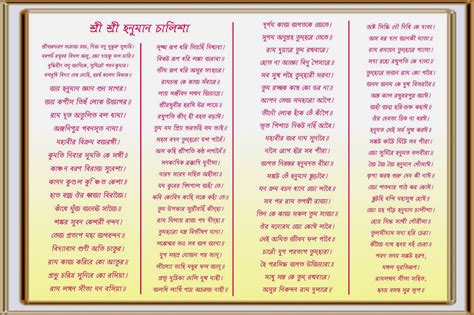 শ্রী শ্রী হনুমান চালিশা
শ্রীগুরুচরণ সরোজ রজ, নিজ মনু মুকুর সুধারি।
বরণউঁ রঘুবর বিমল জসু, জো দায়ক ফল চারি॥
বুদ্ধিহীন তনু জানিকে, সুমিরৌ পবনকুমার।
বল বুদ্ধি বিদ্যা দেহু মোহি, হরহু কলেশ বিকার॥
জয় হনুমান জ্ঞান গুণ সাগর।
জয় কপীস তিহুঁ লোক উজাগর॥
রাম দূত অতুলিত বল ধামা।
অঞ্জনিপুত্র পবনসুত নামা॥
মহাবীর বিক্রম বজরঙ্গী।
কুমতি নিবার সুমতি কে সঙ্গী॥
কাঞ্চন বরণ বিরাজ সুবেসা।
কানন কুণ্ডল কুঞ্চিত কেসা॥
হাত বজ্র ঔর ধ্বজা বিরাজৈ।
কাঁধে মূঁজ জনেউ সাজৈ॥
শঙ্কর সুবন কেশরী নন্দন।
তেজ প্রতাপ মহা জগবন্দন॥
বিদ্যাবান গুণী অতি চাতুর।
রাম কাজ করিবে কো আতুর॥
প্রভু চরিত্র সুনিবে কো রসিয়া।
রাম লখন সীতা মন বসিয়া॥
সূক্ষ্ম রূপ ধরি সিয়হিঁ দিখাবা।
বিকট রূপ ধরি লঙ্কা জরাবা॥
ভীম রূপ ধরি অসুর সংহারে।
রামচন্দ্র কে কাজ সংবারে॥
লায় সজীবন লখন জিয়ায়ে।
শ্রীরঘুবীর হরষি উর লায়ে॥
রঘুপতি কীন্হী বহুত বড়াই।
তুম মম প্রিয় ভরত সম ভাই॥
সহস বদন তুমহরো জস গাবৈঁ।
অস কহি শ্রীপতি কণ্ঠ লগাবৈঁ॥
সনকাদিক ব্রহ্মাদি মুনীসা।
নারদ সারদ সহিত অহীসা॥
যম কুবের দিগপাল জহাঁ তে।
কবি কোবিদ কহি সকে কহাঁ তে॥
তুম উপকার সুগ্রীবহিঁ কীন্হা।
রাম মিলায় রাজ পদ দীন্হা॥
তুমহরো মন্ত্র বিভীষণ মানা।
লঙ্কেশ্বর ভএ সব জগ জানা॥
যুগ সহস্র যোজন পর ভানু।
লীল্যো তাহি মধুর ফল জানু॥
প্রভু মুদ্রিকা মেলি মুখ মাহীঁ।
জলধি লাঁঘি গয়ে অচরজ নাহীঁ॥
দুর্গম কাজ জগতকে জেতে।
সুগম অনুগ্রহ তুমহরে তেতে॥
রাম দুয়ারে তুম রখবারে।
হোত ন আজ্ঞা বিনু পৈসারে॥
সব সুখ লহৈ তুমহারী সরনা।
তুম রক্ষক কাহু কো ডর না॥
আপন তেজ সম্হারো আপৈ।
তীনোঁ লোক হাঁক তেঁ কাঁপৈ॥
ভূত পিশাচ নিকট নহিঁ আবৈ।
মহাবীর জব নাম সুনাবৈ॥
নাসৈ রোগ হরৈ সব পীরা।
জপত নিরন্তর হনুমত বীরা॥
সঙ্কট তেঁ হনুমান ছুড়াবৈ।
মন ক্রম বচন ধ্যান জো লাবৈ॥
সব পর রাম তপস্বী রাজা।
তিন কে কাজ সকল তুম সাজা॥
ঔর মনোরথ জো কোই লাবৈ।
সোই অমিত জীবন ফল পাবৈ॥
চারোঁ যুগ প্রতাপ তুমহারা।
হৈ পরসিদ্ধ জগত উজিয়ারা॥
সাধু সন্ত কে তুম রখবারে।
অসুর নিকন্দন রাম দুলারে॥
অষ্ট সিদ্ধি নৌ নিধি কে দাতা।
অস বর দীন জানকী মাতা॥
রাম রসায়ন তুমহরে পাসা।
সদা রহো রঘুপতি কে দাসা॥
তুমহরে ভজন রাম কো পাবৈ।
জনম জনম কে দুখ বিসরাবৈ॥
অন্ত কাল রঘুবরপুর জাই।
জহাঁ জন্ম হরি-ভক্ত কহাই॥
ঔর দেবতা চিত্ত ন ধরই।
হনুমত সেই সর্ব সুখ করই॥
সঙ্কট কটৈ মিটৈ সব পীরা।
জো সুমিরৈ হনুমত বলবীরা॥
জৈ জৈ জৈ হনুমান গোসাঈঁ।
কৃপা করহু গুরু দেব কী নাঈঁ॥
জো শত বার পাঠ কর কোই।
ছুটহি বন্দি মহাসুখ হোই॥
জো য়হ পঢ়ৈ হনুমান চালিশা।
হোয় সিদ্ধি সাখী গৌরীসা॥
তুলসীদাস সদা হরি চেরা।
কীজৈ নাথ হৃদয় মহ ডেরা॥
পবনতনয় সঙ্কট হরণ,
মঙ্গল মূরতিরূপ।
রাম লখন সীতা সহিত,
হৃদয় বসহু সুর ভূপ॥